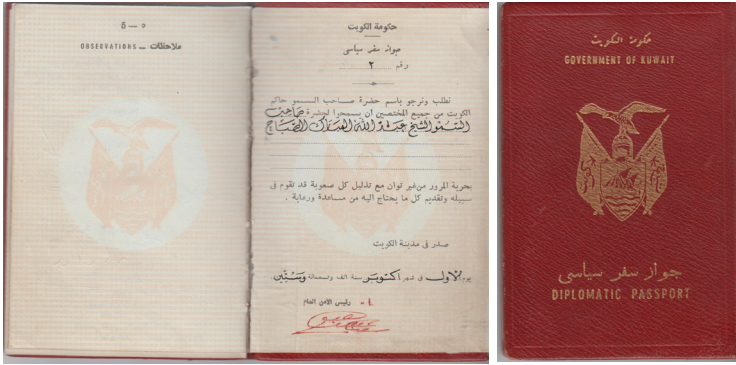 ٥ — 5
OBSERVATIONS — ملاحظات
حكومة الكويت
جواز سفر سياسي
رقم ٢
نطلب ونرجو باسم حضرة صاحب السمو حاكم
الكويت من جميع المختصين ان يسمحوا لحضرة صاحب
السمو الشيخ عبدالله المبارك الصباح
بحرية المرور من غير توان مع تذليل كل صعوبة قد تقوم في
سبيله وتقديم كل ما يحتاج اليه من مساعدة ورعاية .
صدر في مدينة الكويت
يوم الاول في شهر اكتوبر سنة الف وتسعمائة وستين
رئيس الأمن العام
حكومة الكويت
GOVERNMENT OF KUWAIT
جواز سفر سياسي
DIPLOMATIC PASSPORT